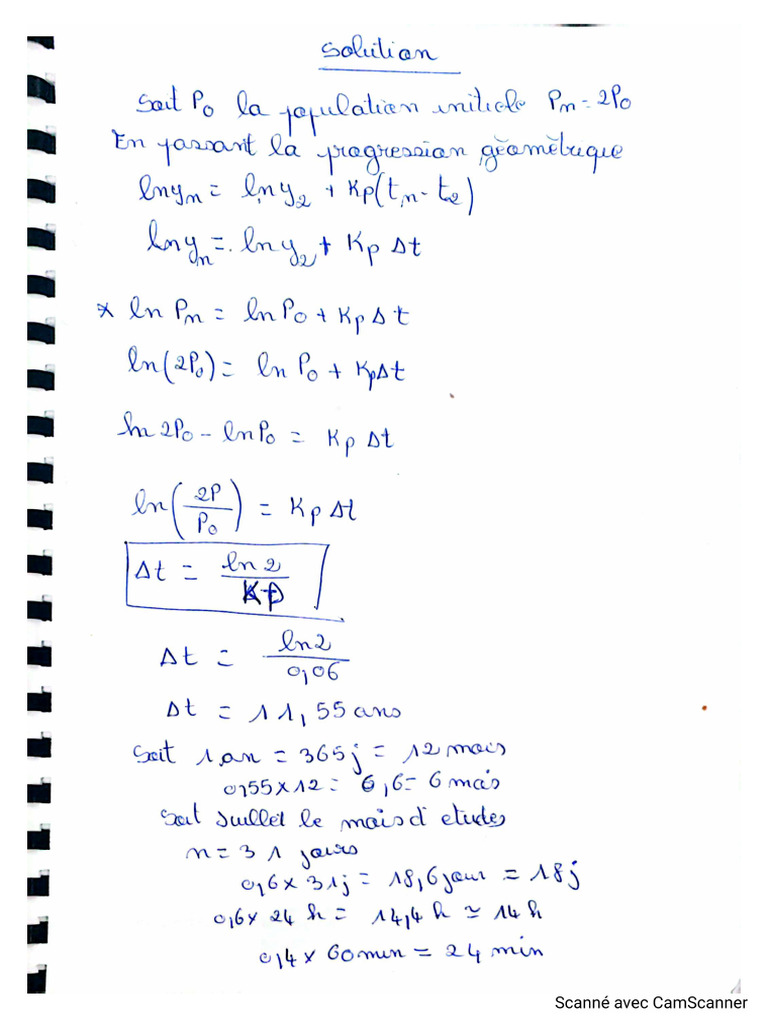 Solution
Soit P₀ la population initiale Pn = 2P₀
En passant la progression géométrique
ln yn = ln y₂ + Kp(tn - t₂)
ln yn = ln y₂ + Kp Δt
* ln Pn = ln P₀ + Kp Δt
ln(2P₀) = ln P₀ + KpΔt
ln 2P₀ - ln P₀ = Kp Δt
ln(2P/P₀) = Kp Δt
Δt = ln 2/Kp
Δt = ln2/0,06
Δt = 11,55 ans
Soit 1 an = 365j = 12 mois
0,55 x 12 = 6,6 = 6 mois
Soit Juillet le mois d'etudes
n = 31 jours
0,6 x 31j = 18,6 jour = 18j
0,6 x 24 h = 14,4 h ≃ 14 h
0,4 x 60 min = 24 min
Scanné avec CamScanner